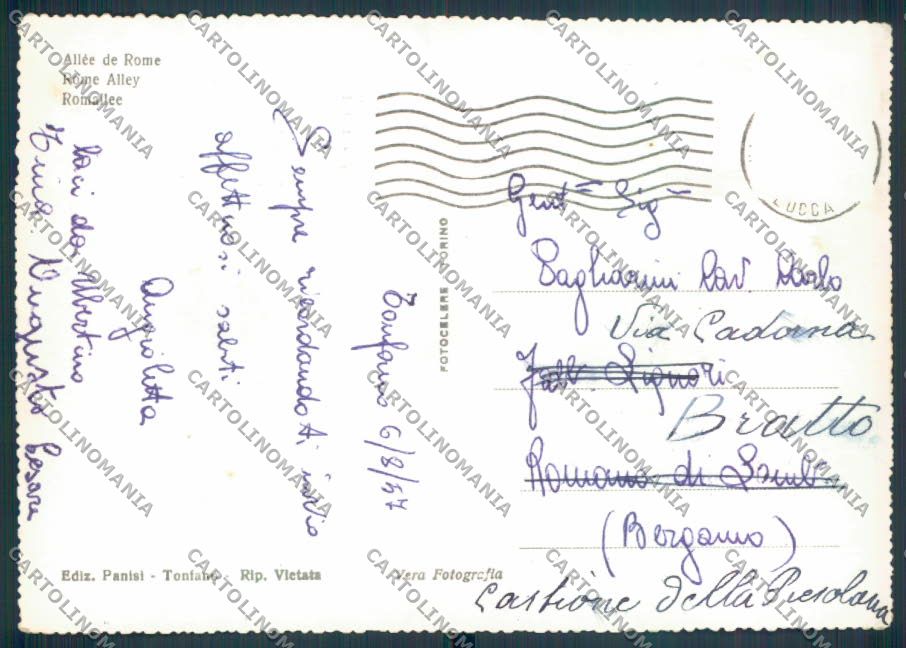 Allée de Rome
Rome Alley
Romallee
Tonfano 6/8/57
Sempre ricordandoti invio
affettuosi saluti
Angioletta
baci da Albertino
Augusto Cesare
FOTOCELERE TORINO
LUCCA
Gent Sig
Pagliarini Cav. Carlo
Via Cadorna
Fatt. Signori
Bratto
Romano di Lomb
(Bergamo)
Castione della Presolana
Ediz. Panisi - Tonfano - Rip. Vietata
Vera Fotografia
CARTOLINOMANIA